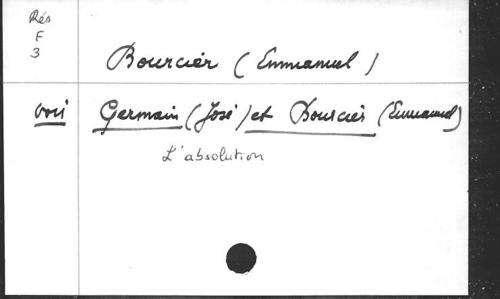 Rés
F
3
Bourcier (Emmanuel)
voir Germain (José) et Bourcier (Emmanuel)
L'absolution